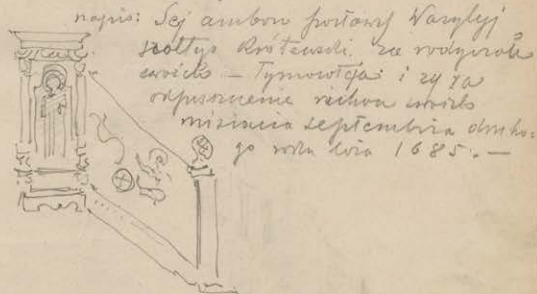 napis: Sej ambon postawył Wasylyj
szołtys Królewski za rodyczów
swoich – Tymowteja i
odpuszczenie richow swoich
misiacia septembria druho-
go roku boża 1685. –